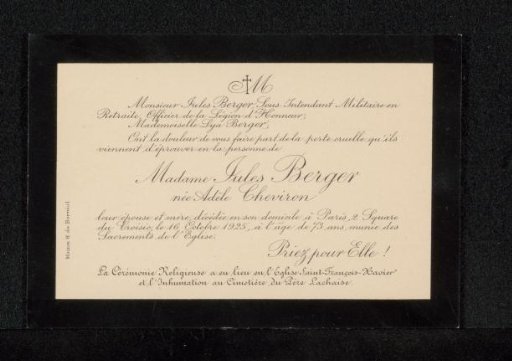 M
Monsieur Jules Berger, Sous Intendant Militaire en
Retraite, Officier de la Légion d'Honneur;
Mademoiselle Berger,
Ont la douleur de vous faire part de la perte cruelle qu'ils
viennent d'éprouver en la personne de
Madame Jules Berger
née Adèle Cheviron
leur épouse et mère, décédée en son domicile à Paris, 2 Square
du Croisic, le 16 Octobre 1925, à l'âge de 73 ans, munie des
Sacrements de l'Eglise.
Priez pour Elle !
La Cérémonie Religieuse a eu lieu en l'Eglise Saint-François-Xavier
et l'Inhumation au Cimetière du Père Lachaise.
Maison H. de